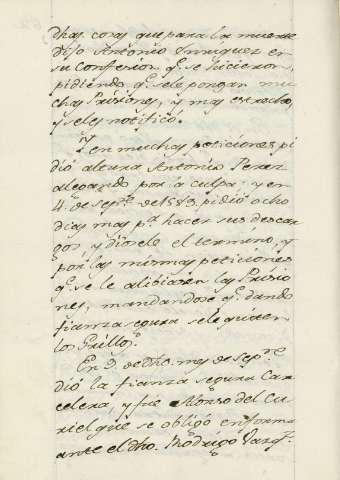 dhas cosas que para la muerte
dijo Antonio Enriquez en
su Confesion q.e se hicieron,
pidiendo q.e sele pongan mu
chas Prisiones, y mas estrechas,
y seles notificó.
Y en muchas peticiones pi
dió Antonio Perez
alegando por la culpa; y en
4. de Sept.e de 1589. pidió ocho
dias mas p.a hacer sus descar
gos, y diosele el termino, y
por las mismas peticiones
q.e se le alibiasen las Prisio
nes, mandandose q.e dando
fianza segura sele quiten
los Grillos.
En 9. de dho. mes de Sep.e
dió la fianza segura Car
celera, y fue Alonso del Cu
riel que se obligó en forma
ante el dho. Rodrigo Vazq.z